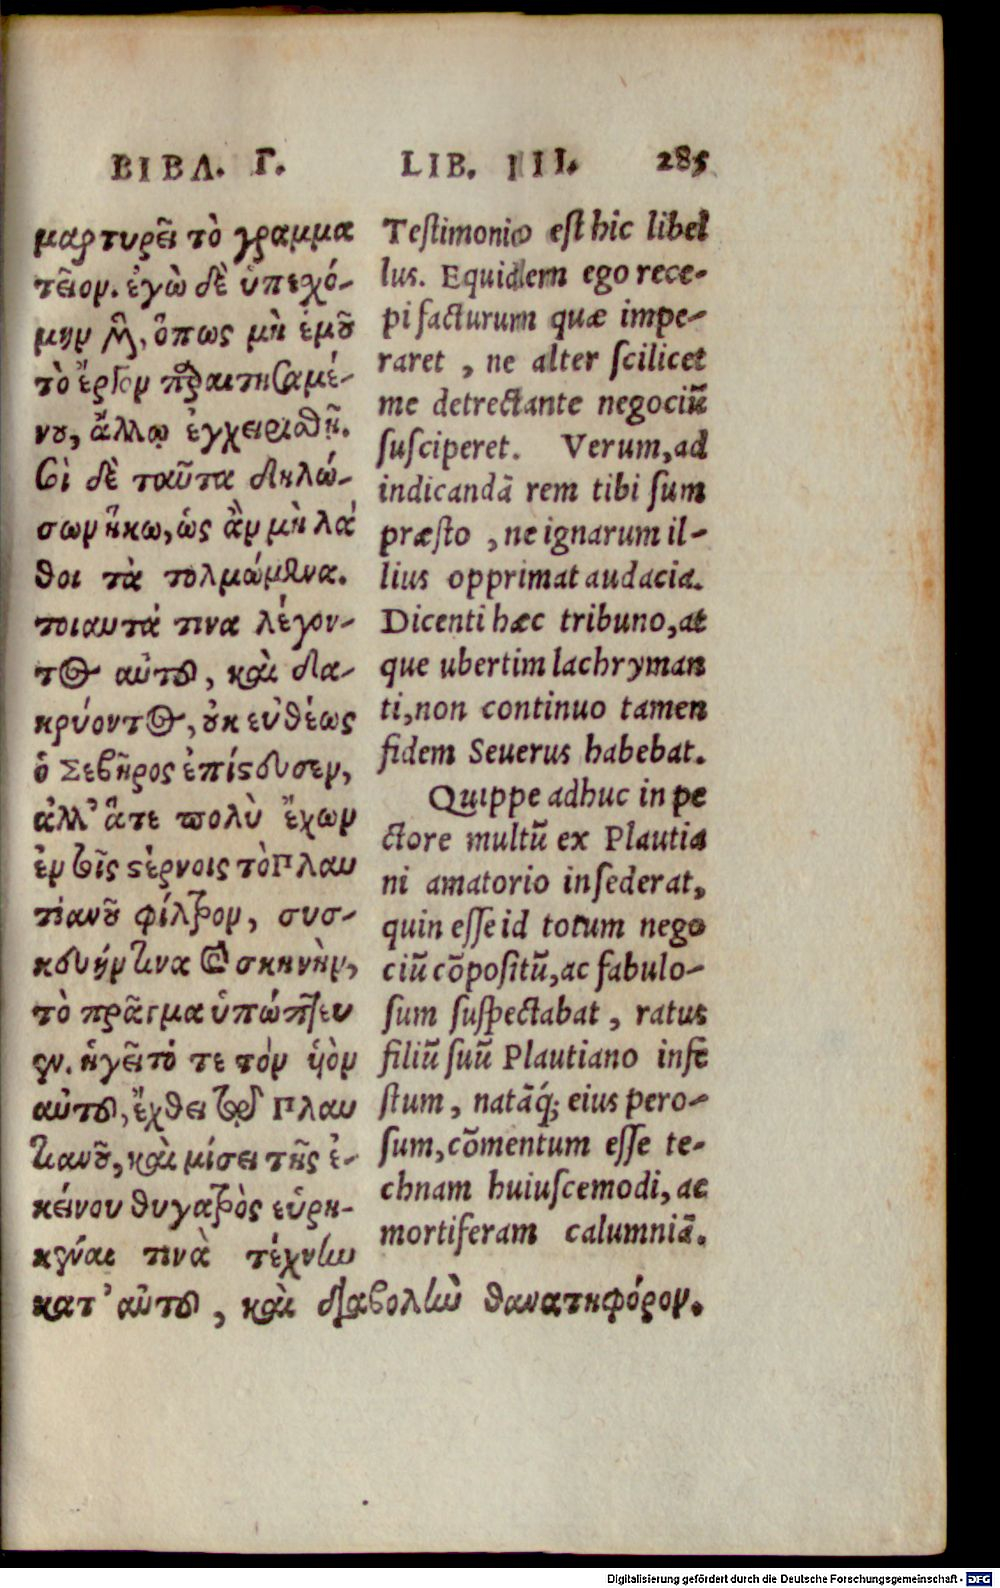 ΒΙΒΛ. Γ.
μαρτυρεῖ τὸ γραμμα
τεῖον. ἐγὼ δὲ ὑπεχό-
μην , ὅπως μὴ ἐμοῦ
τὸ ἔργον παραιτησαμέ-
νου, ἄλλῳ ἐγχειρισθῇ.
σοὶ δὲ ταῦτα δηλώ-
σων ἥκω, ὡς ἂν μὴ λά
θοι τὰ τολμώμενα.
τοιαυτά τινα λέγον-
τος αὐτοῦ, καὶ δια-
κρύοντος, οὐκ εὐθέως
ὁ Σεβῆρος ἐπίστευσεν,
ἀλλ' ἅτε πολὺ ἔχων
ἐν τοῖς στέρνοις τὸ Πλαυ
τιανοῦ φίλτρον, συσ-
κευήν τινα καὶ σκηνὴν,
τὸ πρᾶγμα ὑπώπτευ
εν. ἡγεῖτό τε τὸν υἱὸν
αὐτοῦ, ἔχθει τοῦ Πλαυ
τιανοῦ, καὶ μίσει τῆς ἐ-
κείνου θυγατρὸς εὑρη-
κέναι τινὰ τέχνην
κατ' αὐτοῦ, καὶ διαβολὴν θανατηφόρον.
LIB. III. 285
Testimonio est hic libel
lus. Equidem ego rece-
pi facturum quæ impe-
raret, ne alter scilicet
me detrectante negociũ
susciperet. Verum, ad
indicandã rem tibi sum
præsto, ne ignarum il-
lius opprimat audacia.
Dicenti hæc tribuno, at
que ubertim lachryman
ti, non continuo tamen
fidem Seuerus habebat.
Quippe adhuc in pe
ctore multũ ex Plautia
ni amatorio insederat,
quin esse id totum nego
ciũ cõpositũ, ac fabulo-
sum suspectabat, ratus
filiũ suũ Plautiano infe
stum, natãq; eius pero-
sum, cõmentum esse te-
chnam huiuscemodi, ac
mortiferam calumniã.
Digitalisierung gefördert durch die Deutsche Forschungsgemeinschaft - DFG